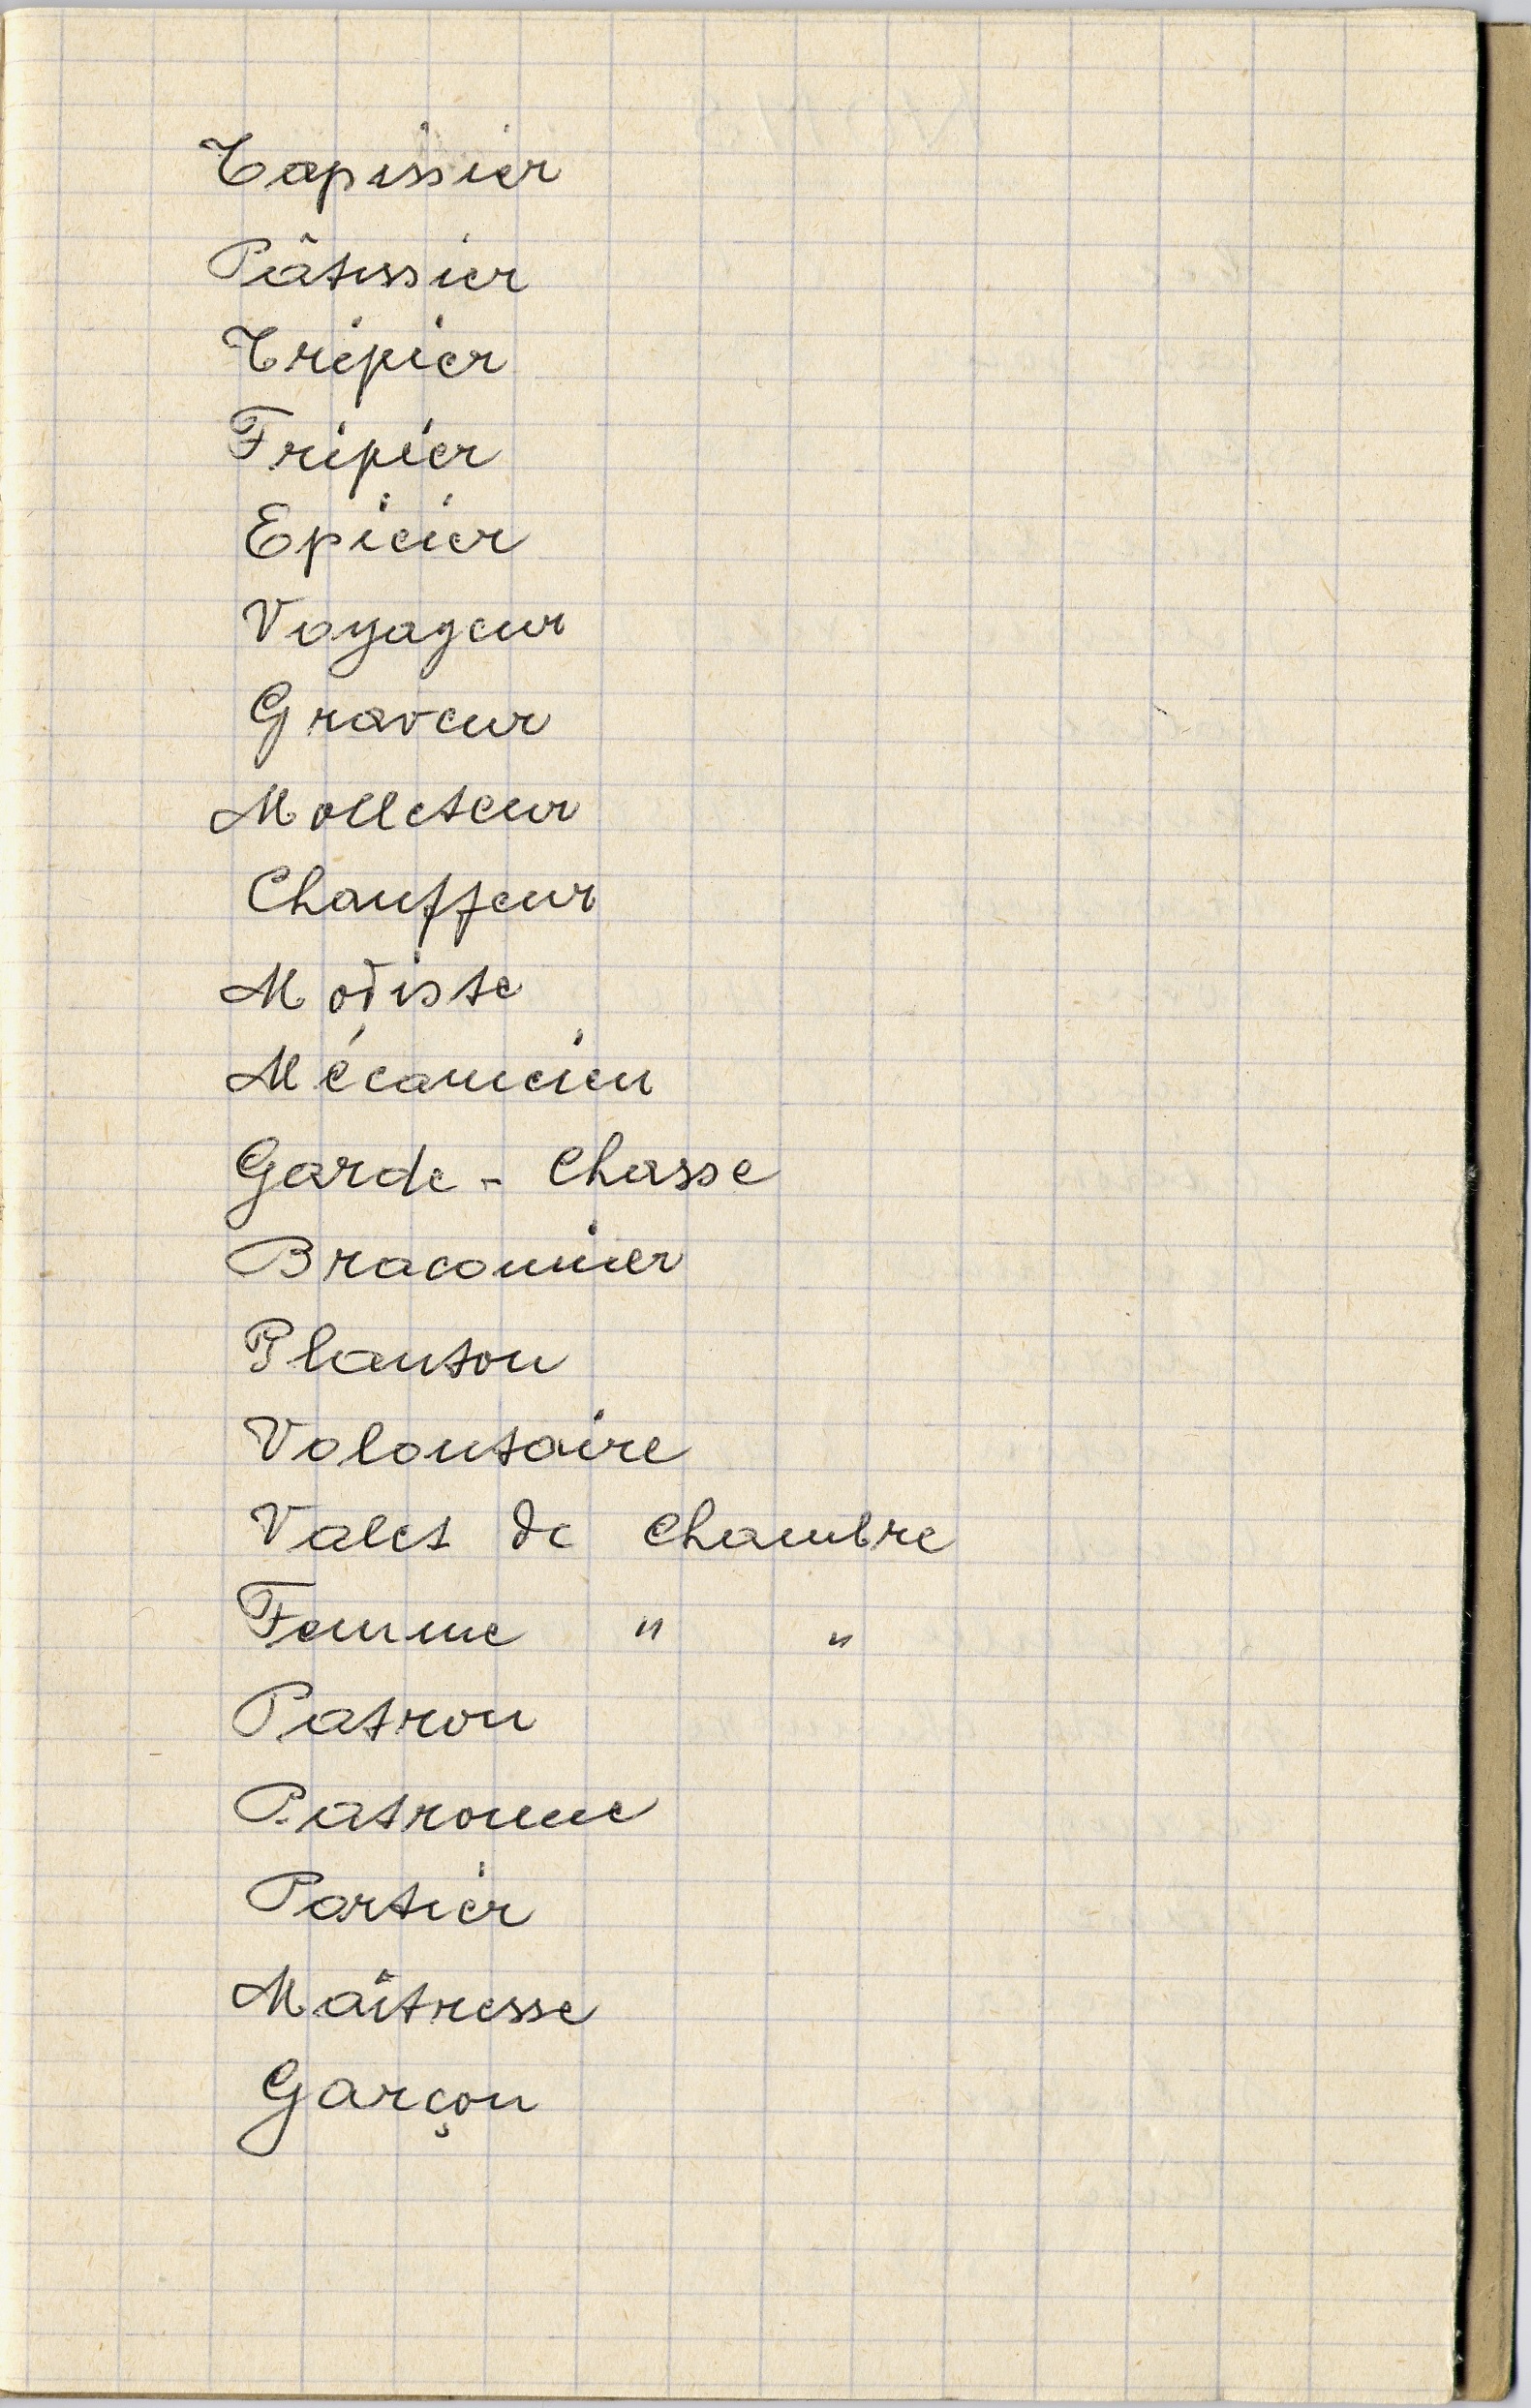 Tapissier
Pâtissier
Tripier
Fripier
Epicier
Voyageur
Graveur
Molleteur
Chauffeur
Modiste
Mécanicien
Garde - Chasse
Braconnier
Planton
Volontaire
Valet de Chambre
Femme " "
Patron
Patronne
Portier
Maîtresse
Garçon